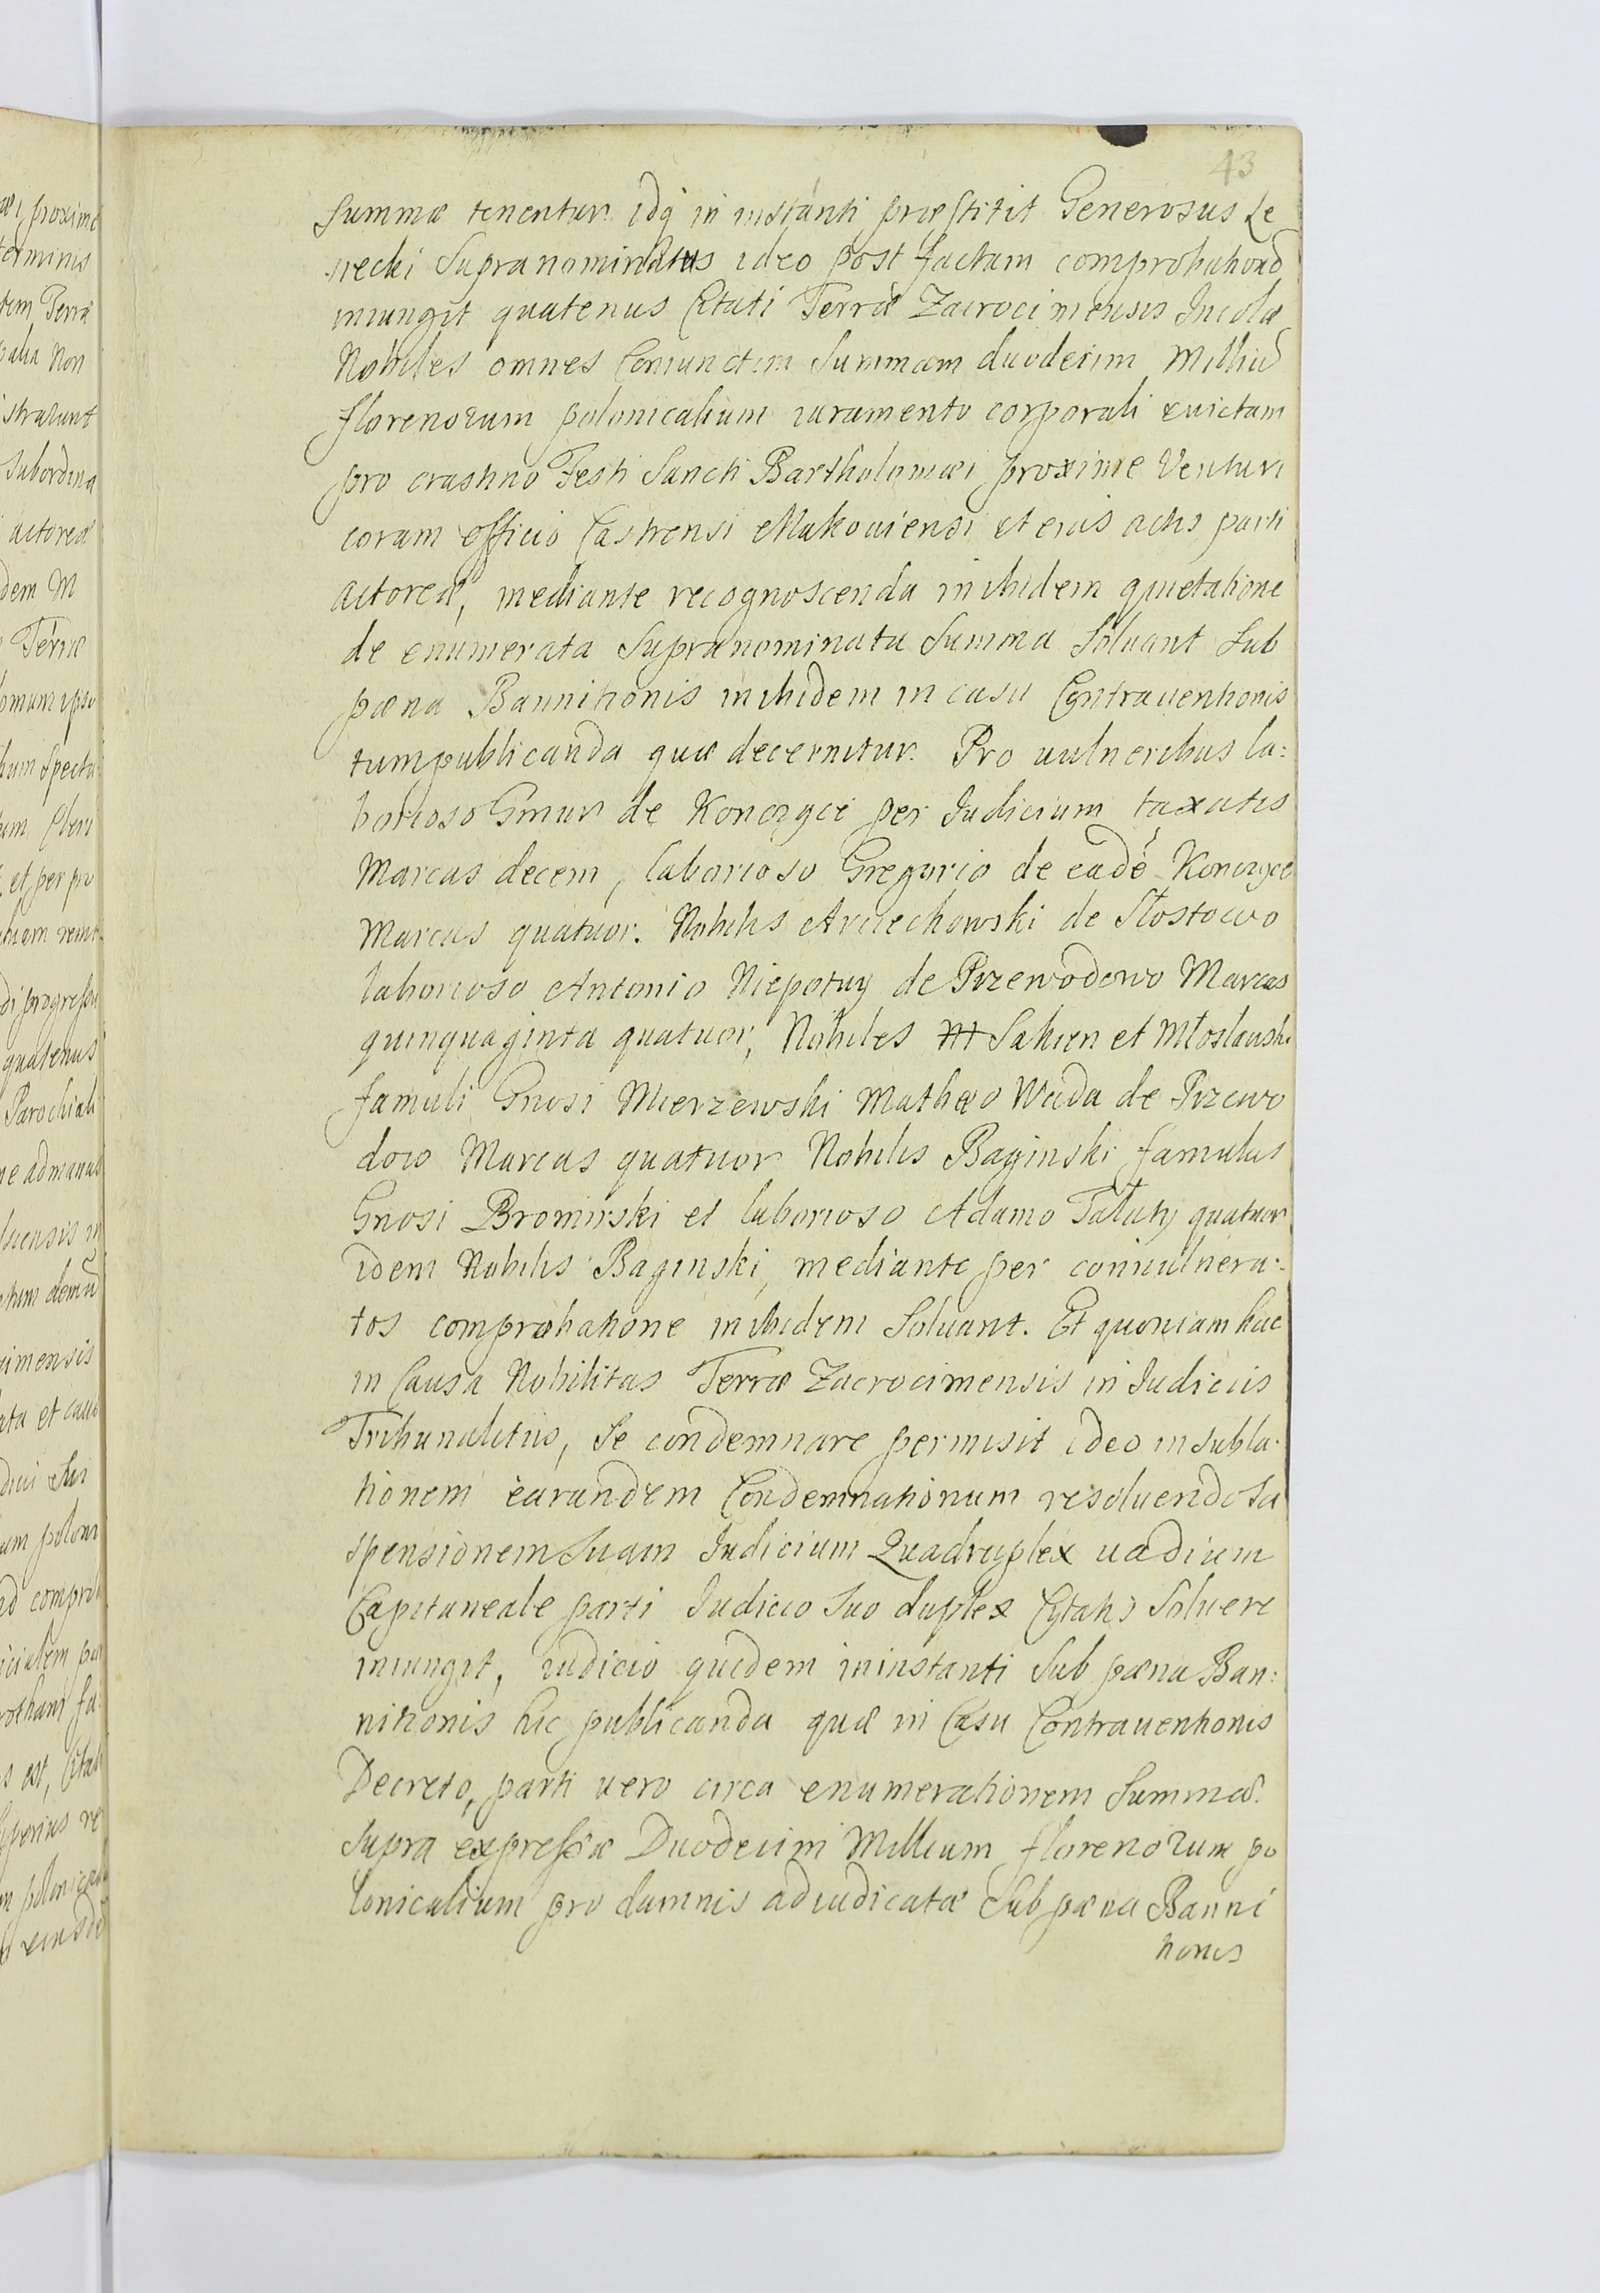 43
Summæ tenentur idq in instanti præstitit Generosus Le
siecki Supranominatus ideo post factam comprobationē
iniungit quatenus Citati Terræ Zacrocimensis Incolæ
Nobiles omnes Coniunctim Summam duodecim Milliū
florenorum polonicalium iuramento corporali euictam
pro crastino Festi Sancti Bartholomæi proxime Venturi
coram officio Castrensi Makoviensi et eius actis parti
actoreæ, mediante recognoscenda inibidem quietatione
de enumerata Supranominata Summa Soluant Sub
pæna Bannitionis inibidem in casu Contrauentionis
tum publicanda quæ decernitur. Pro uulneribus la:
borioso Gmur de Konczyce per Iudicium taxatis
Marcas decem, laborioso Gregorio de eadē Konczyce
Marcas quatuor. Nobilis Arciechowski de Slostowo
laborioso Antonio Niepotuy de Przewodowo Marcas
quinquaginta quatuor, Nobiles Sakien et Młoslawski
famuli Gnosi Mierzewski Mathæo Wuda de Przewo
dowo Marcas quatuor Nobilis Baginski famulus
Gnosi Bromirski et laborioso Adamo Taluty quatuor
idem Nobilis Baginski, mediante per conuulnera:
tos comprobatione inibidem Soluant. Et quoniam hac
in Causa Nobilitas Terræ Zacrocimensis in Iudiciis
Tribunalitiis, Se condemnare permisit ideo in subla:
tionem earundem Condemnationum resoluendo Su
spensionem Suam Iudicium Quadruplex uadium
Capitaneale parti Iudicio Suo duplex Citatis Soluere
iniungit, iudicio quidem in instanti Sub pæna Ban:
nitionis hic publicanda quæ in Casu Contrauentionis
Decreto, parti uero circa enumerationem Summæ
Supra expressæ Duodecim Millium florenorum po
lonicalium pro damnis adiudicatæ Sub pæna Banni
tionis